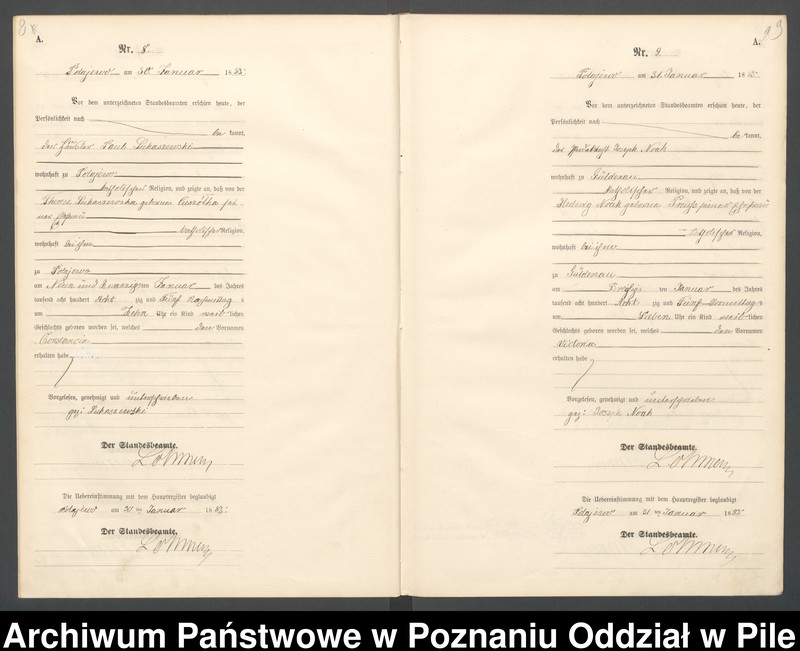 8
A.
Nr. 8.
Polajewo am 30. Januar 1885.
Vor dem unterzeichneten Standesbeamten erschien heute, der
Persönlichkeit nach
be kannt,
der Häusler Paul Lukaszewski
wohnhaft zu Polajewo
katholischer Religion, und zeigte an, daß von der
Lukaszewska geborene
katholischer Religion,
wohnhaft bei ihm
zu Polajewo
am Neun und zwanzigsten Januar des Jahres
tausend acht hundert Acht zig und Fünf Nachmittag s
um Zehn Uhr ein Kind weib lichen
Geschlechts geboren worden sei, welches den Vornamen
Constancia
erhalten habe
Vorgelesen, genehmigt und unterschrieben
gez: Lukaszewski
Der Standesbeamte.
Die Uebereinstimmung mit dem Hauptregister beglaubigt
Polajewo am Januar 1885.
Der Standesbeamte.
9
A.
Nr. 9.
Polajewo am 31. Januar 1885.
Vor dem unterzeichneten Standesbeamten erschien heute, der
Persönlichkeit nach
be kannt,
der Joseph Noak
wohnhaft zu Güldenau
katholischer Religion, und zeigte an, daß von der
Hedwig Noak geborene seiner Ehefrau
katholischer Religion,
wohnhaft bei ihm
zu Güldenau
am Dreißigsten Januar des Jahres
tausend acht hundert Acht zig und Fünf Vormittag s
um Sieben Uhr ein Kind weib lichen
Geschlechts geboren worden sei, welches den Vornamen
Victoria
erhalten habe
Vorgelesen, genehmigt und unterschrieben
gez: Joseph Noak
Der Standesbeamte.
Die Uebereinstimmung mit dem Hauptregister beglaubigt
Polajewo am Januar 1885.
Der Standesbeamte.
Archiwum Państwowe w Poznaniu Oddział w Pile